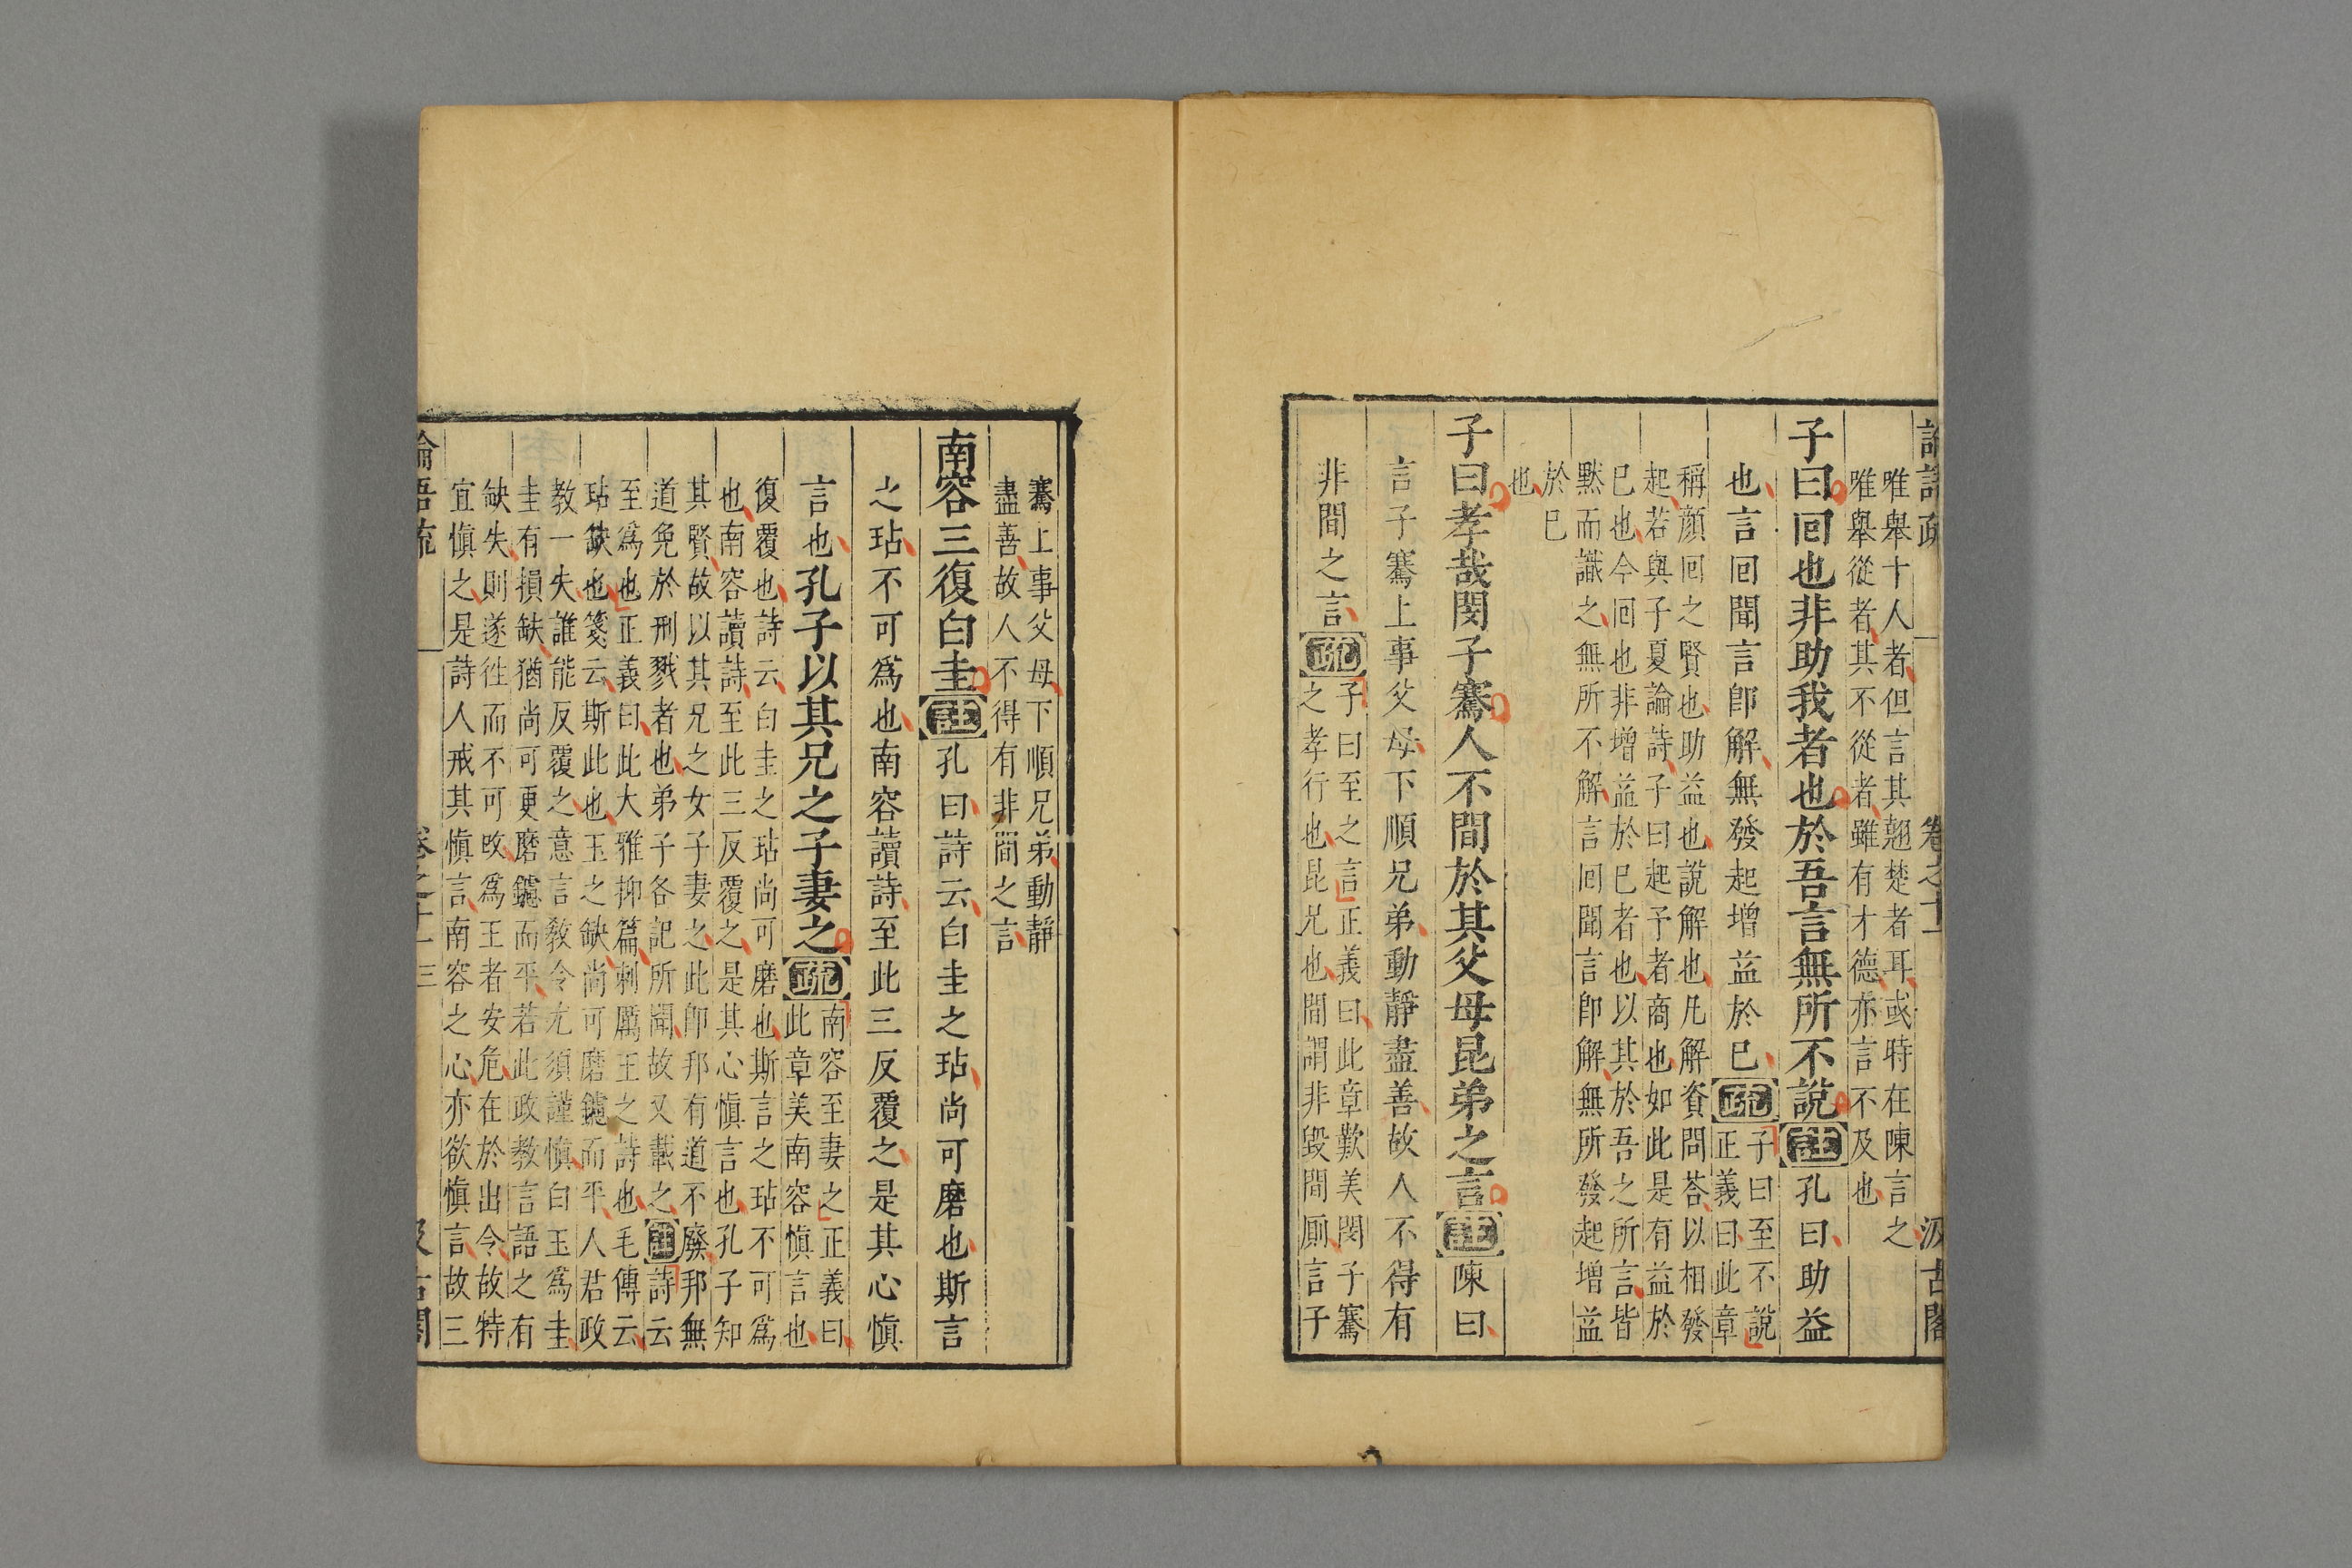 論語疏 卷之十一 汲古閣
唯舉十人者但言其翹楚者耳或時在陳言之
唯舉從者其不從者雖有才德亦言不及也
子曰回也非助我者也於吾言無所不說註孔曰助益
也言回聞言卽解無發起增益於已疏子曰至不說
正義曰此章
稱顏回之賢也助益也說解也凡解資問荅以相發
起若與子夏論詩子曰起予者商也如此是有益於
已也今回也非增益於已者也以其於吾之所言皆
默而識之無所不解言回聞言卽解無所發起增益
於已
也
子曰孝哉閔子騫人不間於其父母昆弟之言註陳曰
言子騫上事父母下順兄弟動靜盡善故人不得有
非間之言疏子曰至之言正義曰此章歎美閔子騫
之孝行也昆兄也間謂非毀間厠言子
騫上事父母下順兄弟動靜
盡善故人不得有非間之言
南容三復白圭註孔曰詩云白圭之玷尚可磨也斯言
之玷不可爲也南容讀詩至此三反覆之是其心愼
言也孔子以其兄之子妻之疏南容至妻之正義曰
此章美南容愼言也
復覆也詩云白圭之玷尚可磨也斯言之玷不可爲
也南容讀詩至此三反覆之是其心愼言也孔子知
其賢故以其兄之女子妻之此卽邦有道不廢邦無
道免於刑戮者也弟子各記所聞故又載之註詩云
至爲也正義曰此大雅抑篇刺厲王之詩也毛傳云
玷缺也箋云斯此也玉之缺尚可磨鑢而平人君政
教一失誰能反覆之意言教令尤須謹愼白玉爲圭
圭有損缺猶尚可更磨鑢而平若此政教言語之有
缺失則遂往而不可改爲王者安危在於出令故特
宜愼之是詩人戒其愼言南容之心亦欲愼言故三
論語疏 卷之十一 三 汲古閣